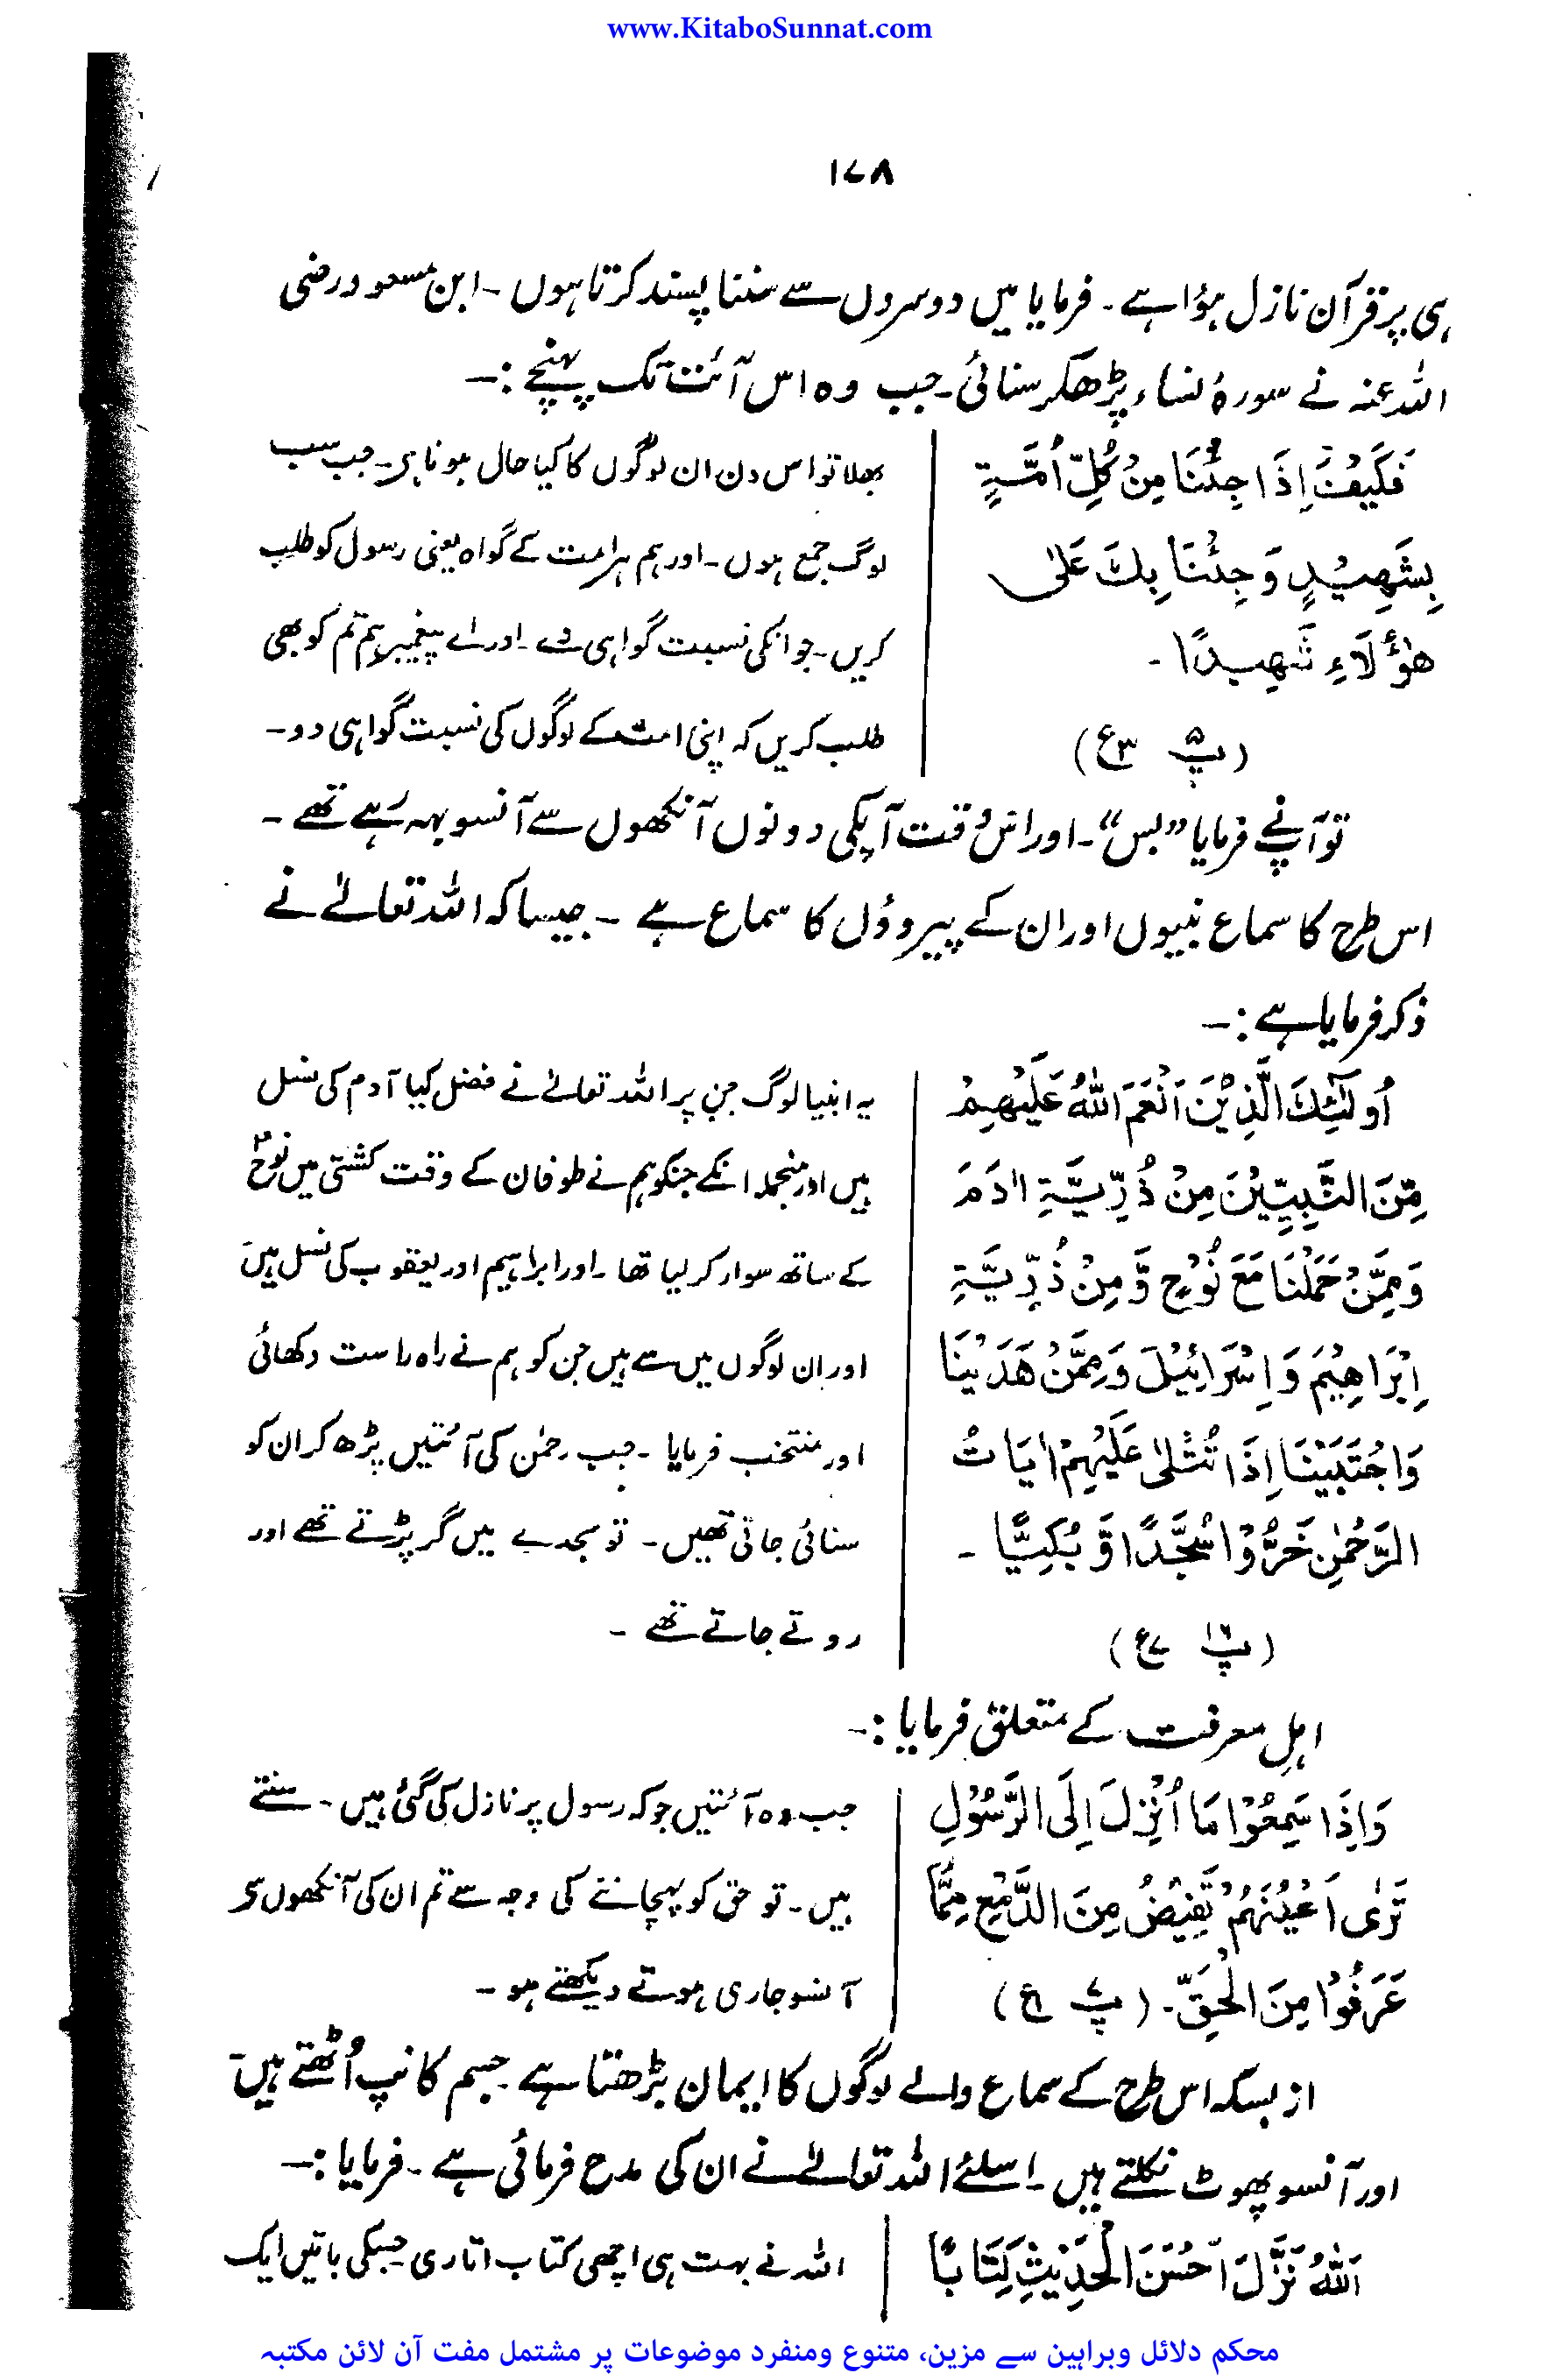 www.KitaboSunnat.com
۱۷۸
ہی پر قرآن نازل ہؤا ہے۔ فرمایا میں دوسروں سے سننا پسند کرتا ہوں۔ ابن مسعود رضی
اللہ عنہ نے سورۂ نساء پڑھکر سنائی۔ جب وہ اس آئت تک پہنچے :۔
فَكَيْفَ اِذَا جِئْنَا مِنْ كُلِّ اُمَّةٍ
بِشَهِيْدٍ وَجِئْنَا بِكَ عَلٰى
هٰؤُلَاءِ شَهِيدًا۔
(پ۵ ع۳)
بھلا تو اس دن ان لوگوں کا کیا حال ہونا ہر۔ جب سب
لوگ جمع ہوں۔ اور ہم ہر امت کے گواہ یعنی رسول کو طلب
کریں۔ جو انکی نسبت گواہی دے۔ اور اے پیغمبر ہم تم کو بھی
طلب کریں کہ اپنی امت کے لوگوں کی نسبت گواہی دو۔
تو آپنے فرمایا ”بس“۔ اور اسوقت آپکی دونوں آنکھوں سے آنسو بہہ رہے تھے۔
اس طرح کا سماع نبیوں اور ان کے پیروؤں کا سماع ہے ۔ جیسا کہ اللہ تعالےٰ نے
ذکر فرمایا ہے :۔
اُولٰٓئِكَ الَّذِيْنَ اَنْعَمَ اللّٰهُ عَلَيْهِمْ
مِّنَ النَّبِيِّيْنَ مِنْ ذُرِّيَّةِ اٰدَمَ
وَمِمَّنْ حَمَلْنَا مَعَ نُوْحٍ وَّمِنْ ذُرِّيَّةِ
اِبْرَاهِيْمَ وَاِسْرَائِيْلَ وَمِمَّنْ هَدَيْنَا
وَاجْتَبَيْنَا اِذَا تُتْلٰى عَلَيْهِمْ اٰيَاتُ
الرَّحْمٰنِ خَرُّوْا سُجَّدًا وَّبُكِيًّا ۔
(پ۱۶ ع۷)
یہ انبیا لوگ جن پر اللہ تعالےٰ نے فضل کیا آدم کی نسل
ہیں اور منجملہ انکے جنکو ہم نے طوفان کے وقت کشتی میں نوحؑ
کے ساتھ سوار کر لیا تھا۔ اور ابراہیم اور یعقوب کی نسل ہیں
اور ان لوگوں میں سے ہیں جن کو ہم نے راہ راست دکھائی
اور منتخب فرمایا۔ جب رحمٰن کی آئتیں پڑھ کر ان کو
سنائی جاتی تھیں۔ تو سجدے میں گر پڑتے تھے اور
روتے جاتے تھے ۔
اہلِ معرفت کے متعلق فرمایا :۔
وَاِذَا سَمِعُوْا مَا اُنْزِلَ اِلَى الرَّسُوْلِ
تَرٰى اَعْيُنَهُمْ تَفِيْضُ مِنَ الدَّمْعِ مِمَّا
عَرَفُوْا مِنَ الْحَقِّ۔ (پ۷ ع۱)
جب وہ آئتیں جو کہ رسول پر نازل کی گئی ہیں۔ سنتے
ہیں۔ تو حق کو پہچاننے کی وجہ سے تم ان کی آنکھوں سے
آنسو جاری ہوتے دیکھتے ہو۔
از بسکہ اس طرح کے سماع والے لوگوں کا ایمان بڑھتا ہے جسم کانپ اُٹھتے ہیں
اور آنسو پھوٹ نکلتے ہیں۔ اسلئے اللہ تعالےٰ نے ان کی مدح فرمائی ہے۔ فرمایا :۔
اَللّٰهُ نَزَّلَ اَحْسَنَ الْحَدِيْثِ كِتَابًا
اللہ نے بہت ہی اچھی کتاب اتاری جسکی باتیں ایک
محکم دلائل وبراہین سے مزین، متنوع ومنفرد موضوعات پر مشتمل مفت آن لائن مکتبہ